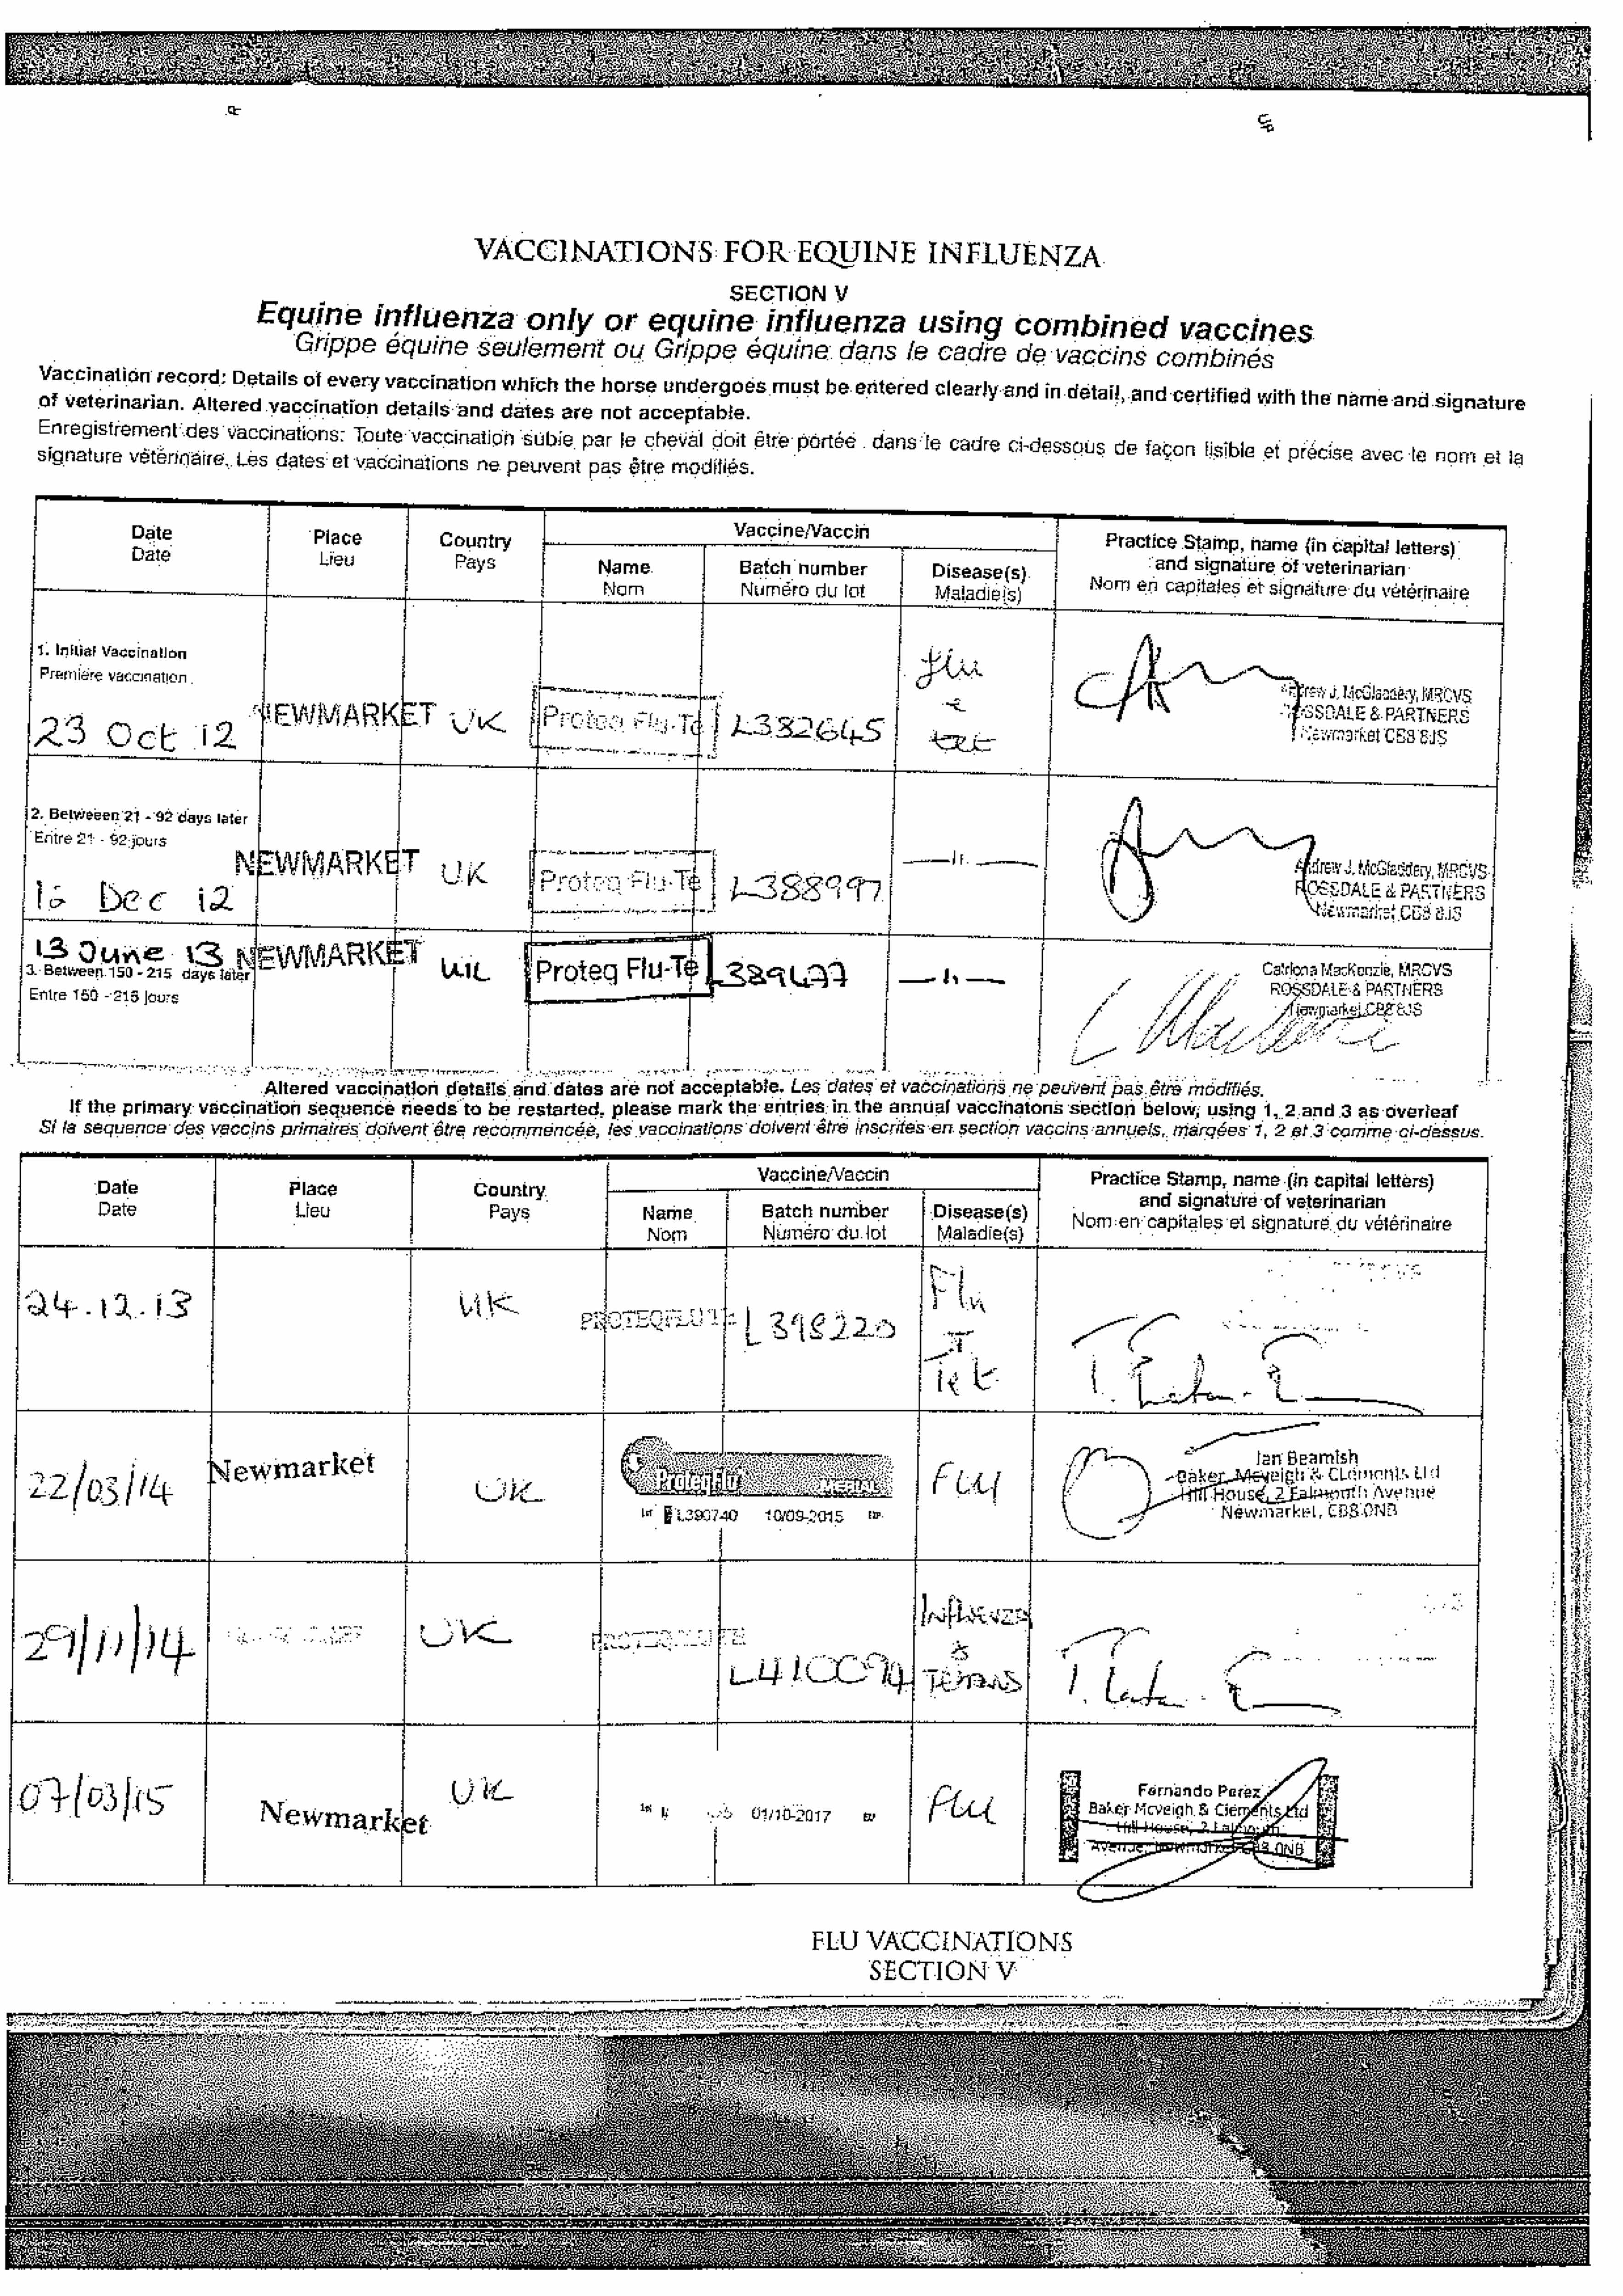 VACCINATIONS FOR EQUINE INFLUENZA
SECTION V
Equine influenza only or equine influenza using combined vaccines
Grippe équine seulement ou Grippe équine dans le cadre de vaccins combinés
Vaccination record: Details of every vaccination which the horse undergoes must be entered clearly and in detail, and certified with the name and signature
of veterinarian. Altered vaccination details and dates are not acceptable.
Enregistrement des vaccinations: Toute vaccination subie par le cheval doit être portée dans le cadre ci-dessous de façon lisible et précise avec le nom et la
signature vétérinaire. Les dates et vaccinations ne peuvent pas être modifiés.
Date Place Country Vaccine/Vaccin Practice Stamp, name (in capital letters)
Date Lieu Pays Name Batch number Disease(s) and signature of veterinarian
Nom Numéro du lot Maladie(s) Nom en capitales et signature du vétérinaire
1. Initial Vaccination
Première vaccination
23 Oct 12 NEWMARKET UK Proteq Flu-Te L382645 flu & tet
Andrew J. McGladdery, MRCVS
ROSSDALE & PARTNERS
Newmarket CB8 8JS
2. Betweeen 21 - 92 days later
Entre 21 - 92 jours
Dec 12 NEWMARKET UK Proteq Flu-Te L388997 —11—
Andrew J. McGladdery, MRCVS
ROSSDALE & PARTNERS
Newmarket CB8 8JS
13 June 13 NEWMARKET UK Proteq Flu-Te L389477 —11—
3. Between 150 - 215 days later
Entre 150 - 215 jours
Catriona MacKenzie, MRCVS
ROSSDALE & PARTNERS
Newmarket CB8 8JS
Altered vaccination details and dates are not acceptable. Les dates et vaccinations ne peuvent pas être modifiés.
If the primary vaccination sequence needs to be restarted, please mark the entries in the annual vaccinatons section below, using 1, 2 and 3 as overleaf
Si la sequence des vaccins primaires doivent être recommencée, les vaccinations doivent être inscrites en section vaccins annuels, marqées 1, 2 et 3 comme ci-dessus.
Date Place Country Vaccine/Vaccin Practice Stamp, name (in capital letters)
Date Lieu Pays Name Batch number Disease(s) and signature of veterinarian
Nom Numéro du lot Maladie(s) Nom en capitales et signature du vétérinaire
24.12.13 UK PROTEQFLU TE L398220 Flu
Tet
22/03/14 Newmarket UK ProteqFlu MERIAL FLU
L390740 10/09-2015
Ian Beamish
Baker, Mcveigh & CLements Ltd
Hill House, 2 Falmouth Avenue
Newmarket, CB8 0NB
29/11/14 UK PROTEQFLU TE L410094 INFLUENZA & TETANUS
07/03/15 Newmarket UK 01/10-2017 FLU
Fernando Perez
Baker Mcveigh & Clements Ltd
Hill House, 2 Falmouth
Avenue, Newmarket CB8 0NB
FLU VACCINATIONS
SECTION V